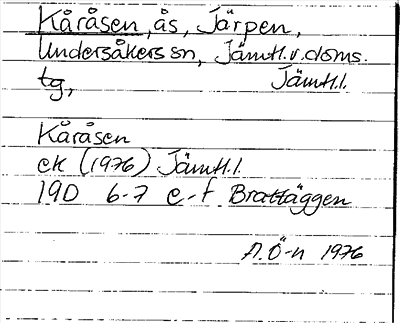 Kåråsen, ås, Järpen,
Undersåkers sn, Jämtl.v.doms.
tg, Jämtl.l.
Kåråsen
ek (1976) Jämtl.l.
19D 6-7 e-f Brattäggen
A.Ö-n 1976